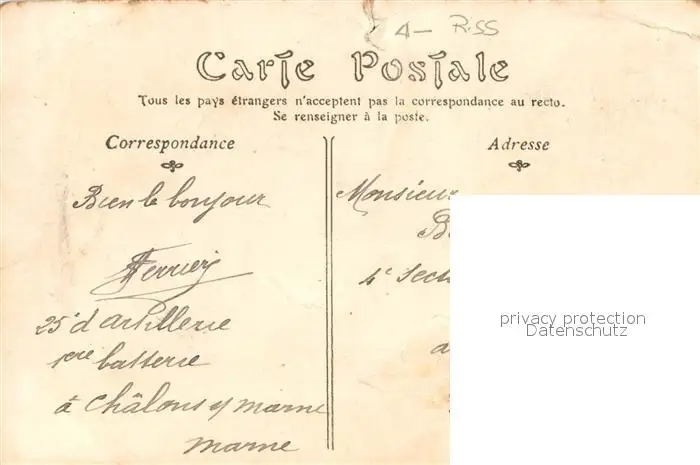 4— R.SS
Carte Postale
Tous les pays étrangers n'acceptent pas la correspondance au recto.
Se renseigner à la poste.
Correspondance
Bien le bonjour
25e d'artillerie
1ère batterie
à Châlons s/ marne
marne
Adresse
Monsieur
4e Sect
a
privacy protection
Datenschutz